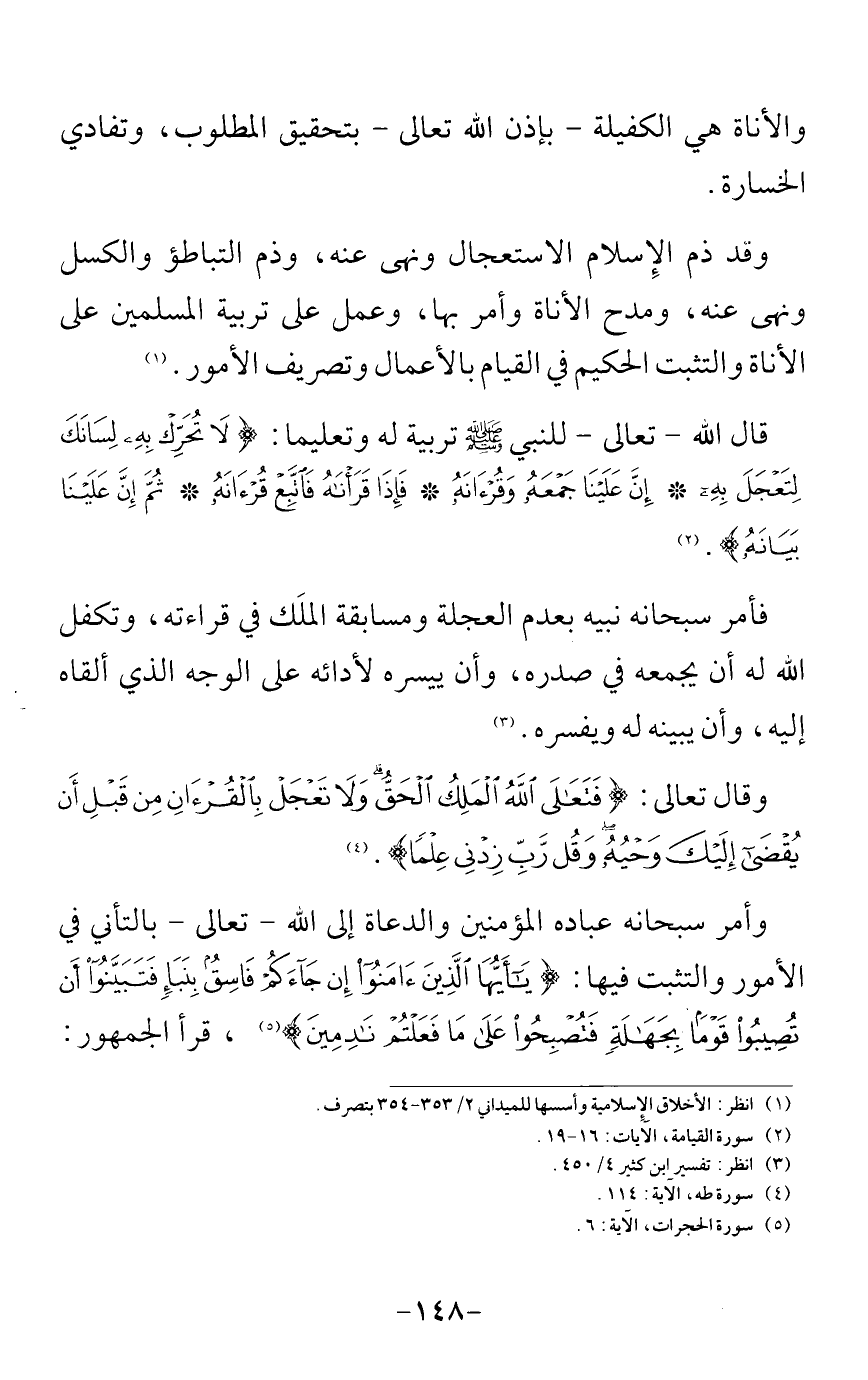 والأناة هي الكفيلة – بإذن الله تعالى – بتحقيق المطلوب، وتفادي
الخسارة.
وقد ذم الإسلام الاستعجال ونهى عنه، وذم التباطؤ والكسل
ونهى عنه، ومدح الأناة وأمر بها، وعمل على تربية المسلمين على
الأناة والتثبت الحكيم في القيام بالأعمال وتصريف الأمور. (١)
قال الله – تعالى – للنبي ﷺ تربية له وتعليما: ﴿لَا تُحَرِّكْ بِهِۦ لِسَانَكَ
لِتَعْجَلَ بِهِۦٓ * إِنَّ عَلَيْنَا جَمْعَهُۥ وَقُرْءَانَهُۥ * فَإِذَا قَرَأْنَٰهُ فَٱتَّبِعْ قُرْءَانَهُۥ * ثُمَّ إِنَّ عَلَيْنَا
بَيَانَهُۥ﴾. (٢)
فأمر سبحانه نبيه بعدم العجلة ومسابقة الملَك في قراءته، وتكفل
الله له أن يجمعه في صدره، وأن ييسره لأدائه على الوجه الذي ألقاه
إليه، وأن يبينه له ويفسره. (٣)
وقال تعالى: ﴿فَتَعَٰلَى ٱللَّهُ ٱلْمَلِكُ ٱلْحَقُّ ۗ وَلَا تَعْجَلْ بِٱلْقُرْءَانِ مِن قَبْلِ أَن
يُقْضَىٰٓ إِلَيْكَ وَحْيُهُۥ ۖ وَقُل رَّبِّ زِدْنِى عِلْمًا﴾. (٤)
وأمر سبحانه عباده المؤمنين والدعاة إلى الله – تعالى – بالتأني في
الأمور والتثبت فيها: ﴿يَٰٓأَيُّهَا ٱلَّذِينَ ءَامَنُوٓا۟ إِن جَآءَكُمْ فَاسِقٌۢ بِنَبَإٍ فَتَبَيَّنُوٓا۟ أَن
تُصِيبُوا۟ قَوْمًۢا بِجَهَٰلَةٍ فَتُصْبِحُوا۟ عَلَىٰ مَا فَعَلْتُمْ نَٰدِمِينَ﴾ (٥) ، قرأ الجمهور:
(١) انظر: الأخلاق الإسلامية وأسسها للميداني ٢/ ٣٥٣-٣٥٤ بتصرف.
(٢) سورة القيامة، الآيات: ١٦-١٩.
(٣) انظر: تفسير ابن كثير ٤/ ٤٥٠.
(٤) سورة طه، الآية: ١١٤.
(٥) سورة الحجرات، الآية: ٦.
-١٤٨-